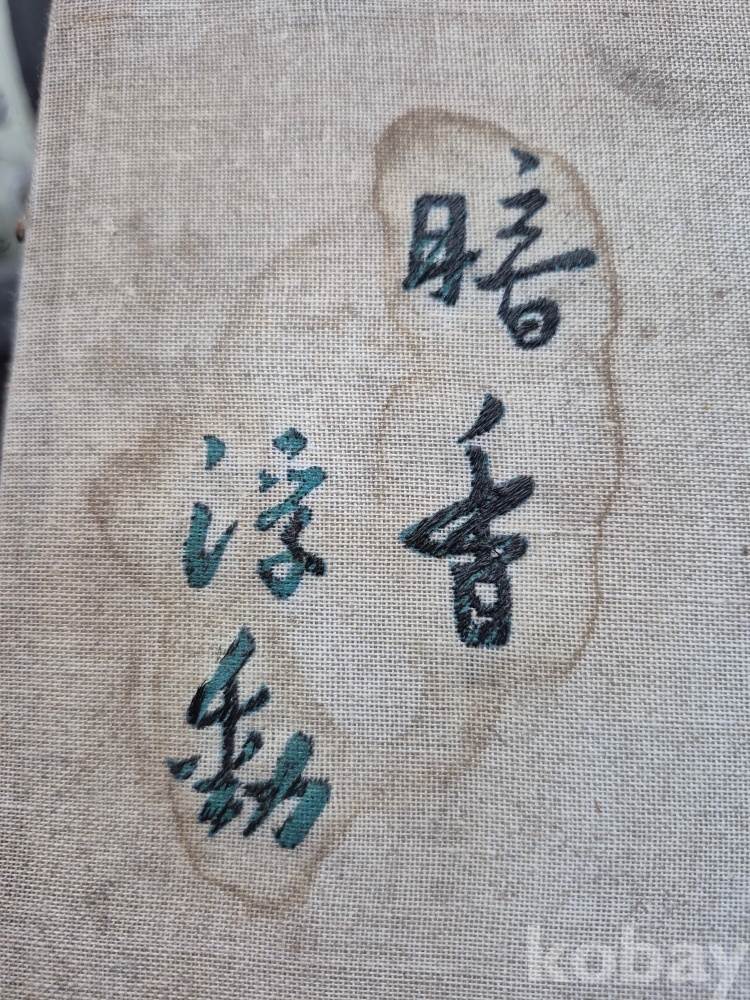 暗香
浮動
kobay